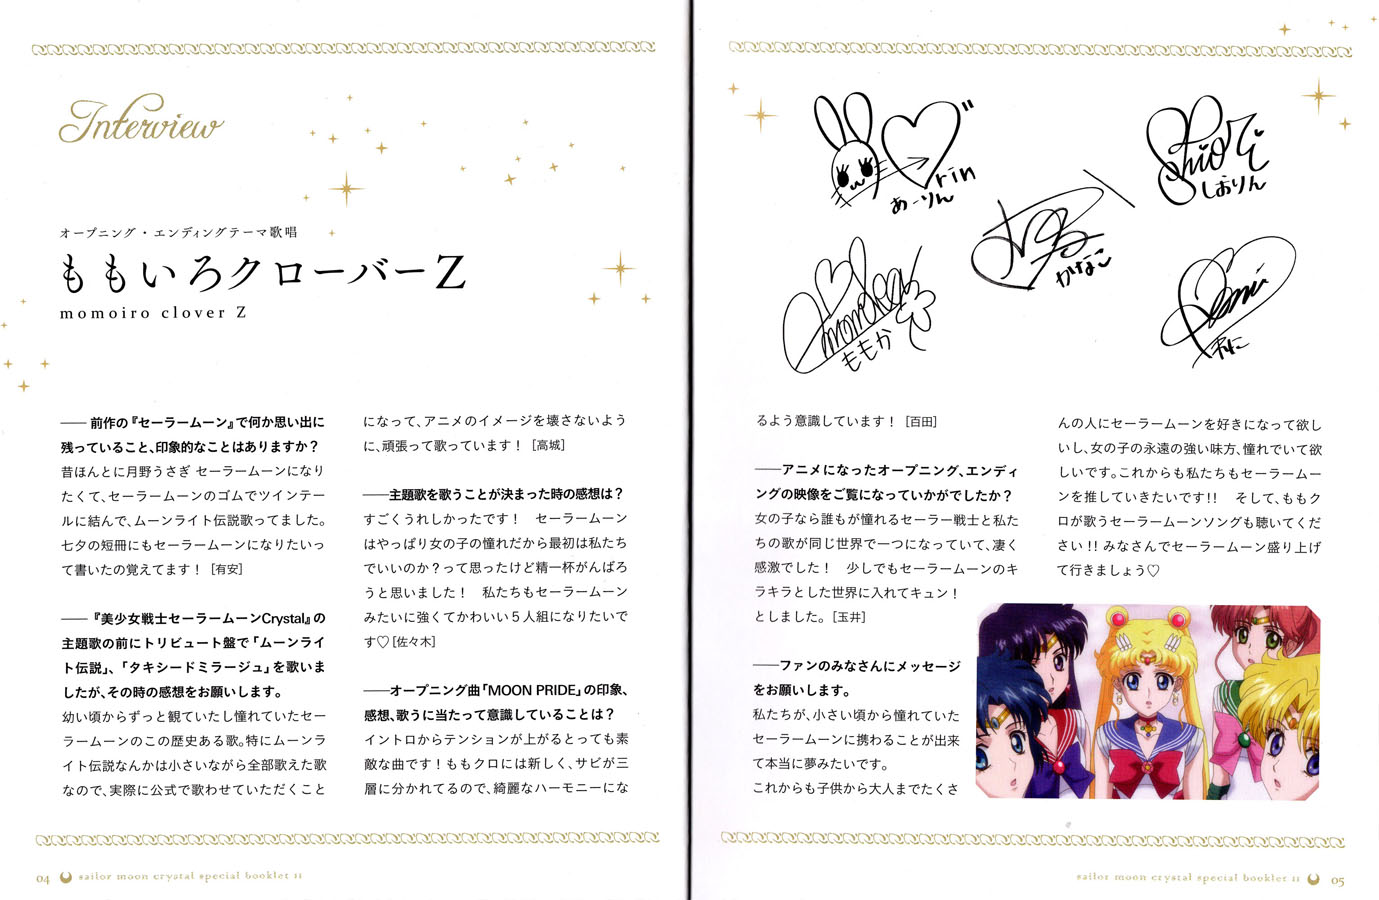 Interview
オープニング・エンディングテーマ歌唱
ももいろクローバーZ
momoiro clover Z
—— 前作の『セーラームーン』で何か思い出に
残っていること、印象的なことはありますか？
昔ほんとに月野うさぎ セーラームーンになり
たくて、セーラームーンのゴムでツインテー
ルに結んで、ムーンライト伝説歌ってました。
七夕の短冊にもセーラームーンになりたいっ
て書いたの覚えてます！［有安］
——『美少女戦士セーラームーンCrystal』の
主題歌の前にトリビュート盤で「ムーンライ
ト伝説」、「タキシードミラージュ」を歌いま
したが、その時の感想をお願いします。
幼い頃からずっと観ていたし憧れていたセー
ラームーンのこの歴史ある歌。特にムーンラ
イト伝説なんかは小さいながら全部歌えた歌
なので、実際に公式で歌わせていただくこと
になって、アニメのイメージを壊さないよう
に、頑張って歌っています！［高城］
——主題歌を歌うことが決まった時の感想は？
すごくうれしかったです！　セーラームーン
はやっぱり女の子の憧れだから最初は私たち
でいいのか？って思ったけど精一杯がんばろ
うと思いました！　私たちもセーラームーン
みたいに強くてかわいい５人組になりたいで
す♡［佐々木］
——オープニング曲「MOON PRIDE」の印象、
感想、歌うに当たって意識していることは？
イントロからテンションが上がるとっても素
敵な曲です！ももクロには新しく、サビが三
層に分かれてるので、綺麗なハーモニーにな
04 sailor moon crystal special booklet II
rin
あーりん
Shiori
しおりん
かなこ
momoka
ももか
Reni
れに
るよう意識しています！［百田］
——アニメになったオープニング、エンディ
ングの映像をご覧になっていかがでしたか？
女の子なら誰もが憧れるセーラー戦士と私た
ちの歌が同じ世界で一つになっていて、凄く
感激でした！　少しでもセーラームーンのキ
ラキラとした世界に入れてキュン！
としました。［玉井］
——ファンのみなさんにメッセージ
をお願いします。
私たちが、小さい頃から憧れていた
セーラームーンに携わることが出来
て本当に夢みたいです。
これからも子供から大人までたくさ
んの人にセーラームーンを好きになって欲し
いし、女の子の永遠の強い味方、憧れでいて欲
しいです。これからも私たちもセーラームー
ンを推していきたいです!!　そして、ももク
ロが歌うセーラームーンソングも聴いてくだ
さい!! みなさんでセーラームーン盛り上げ
て行きましょう♡
sailor moon crystal special booklet II 05